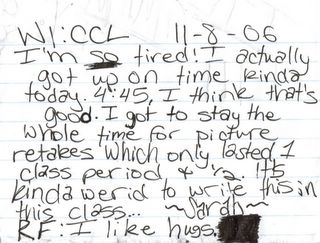 W1:CCL 11-8-06
I'm so tired! I actually
got up on time kinda
today. 4:45, I think that's
good. I got to stay the
whole time for picture
retakes which only lasted 1
class period & 1/2. It's
kinda werid to write this in
this class... ~Sarah~
RF: I like hugs.